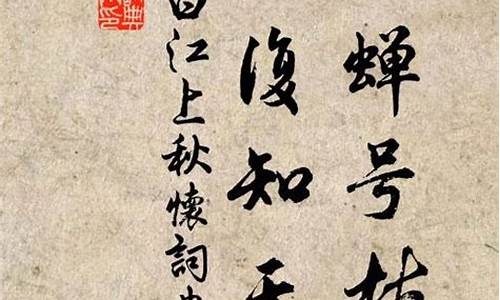 蝉号枯
復知天
白江上秋懷詞